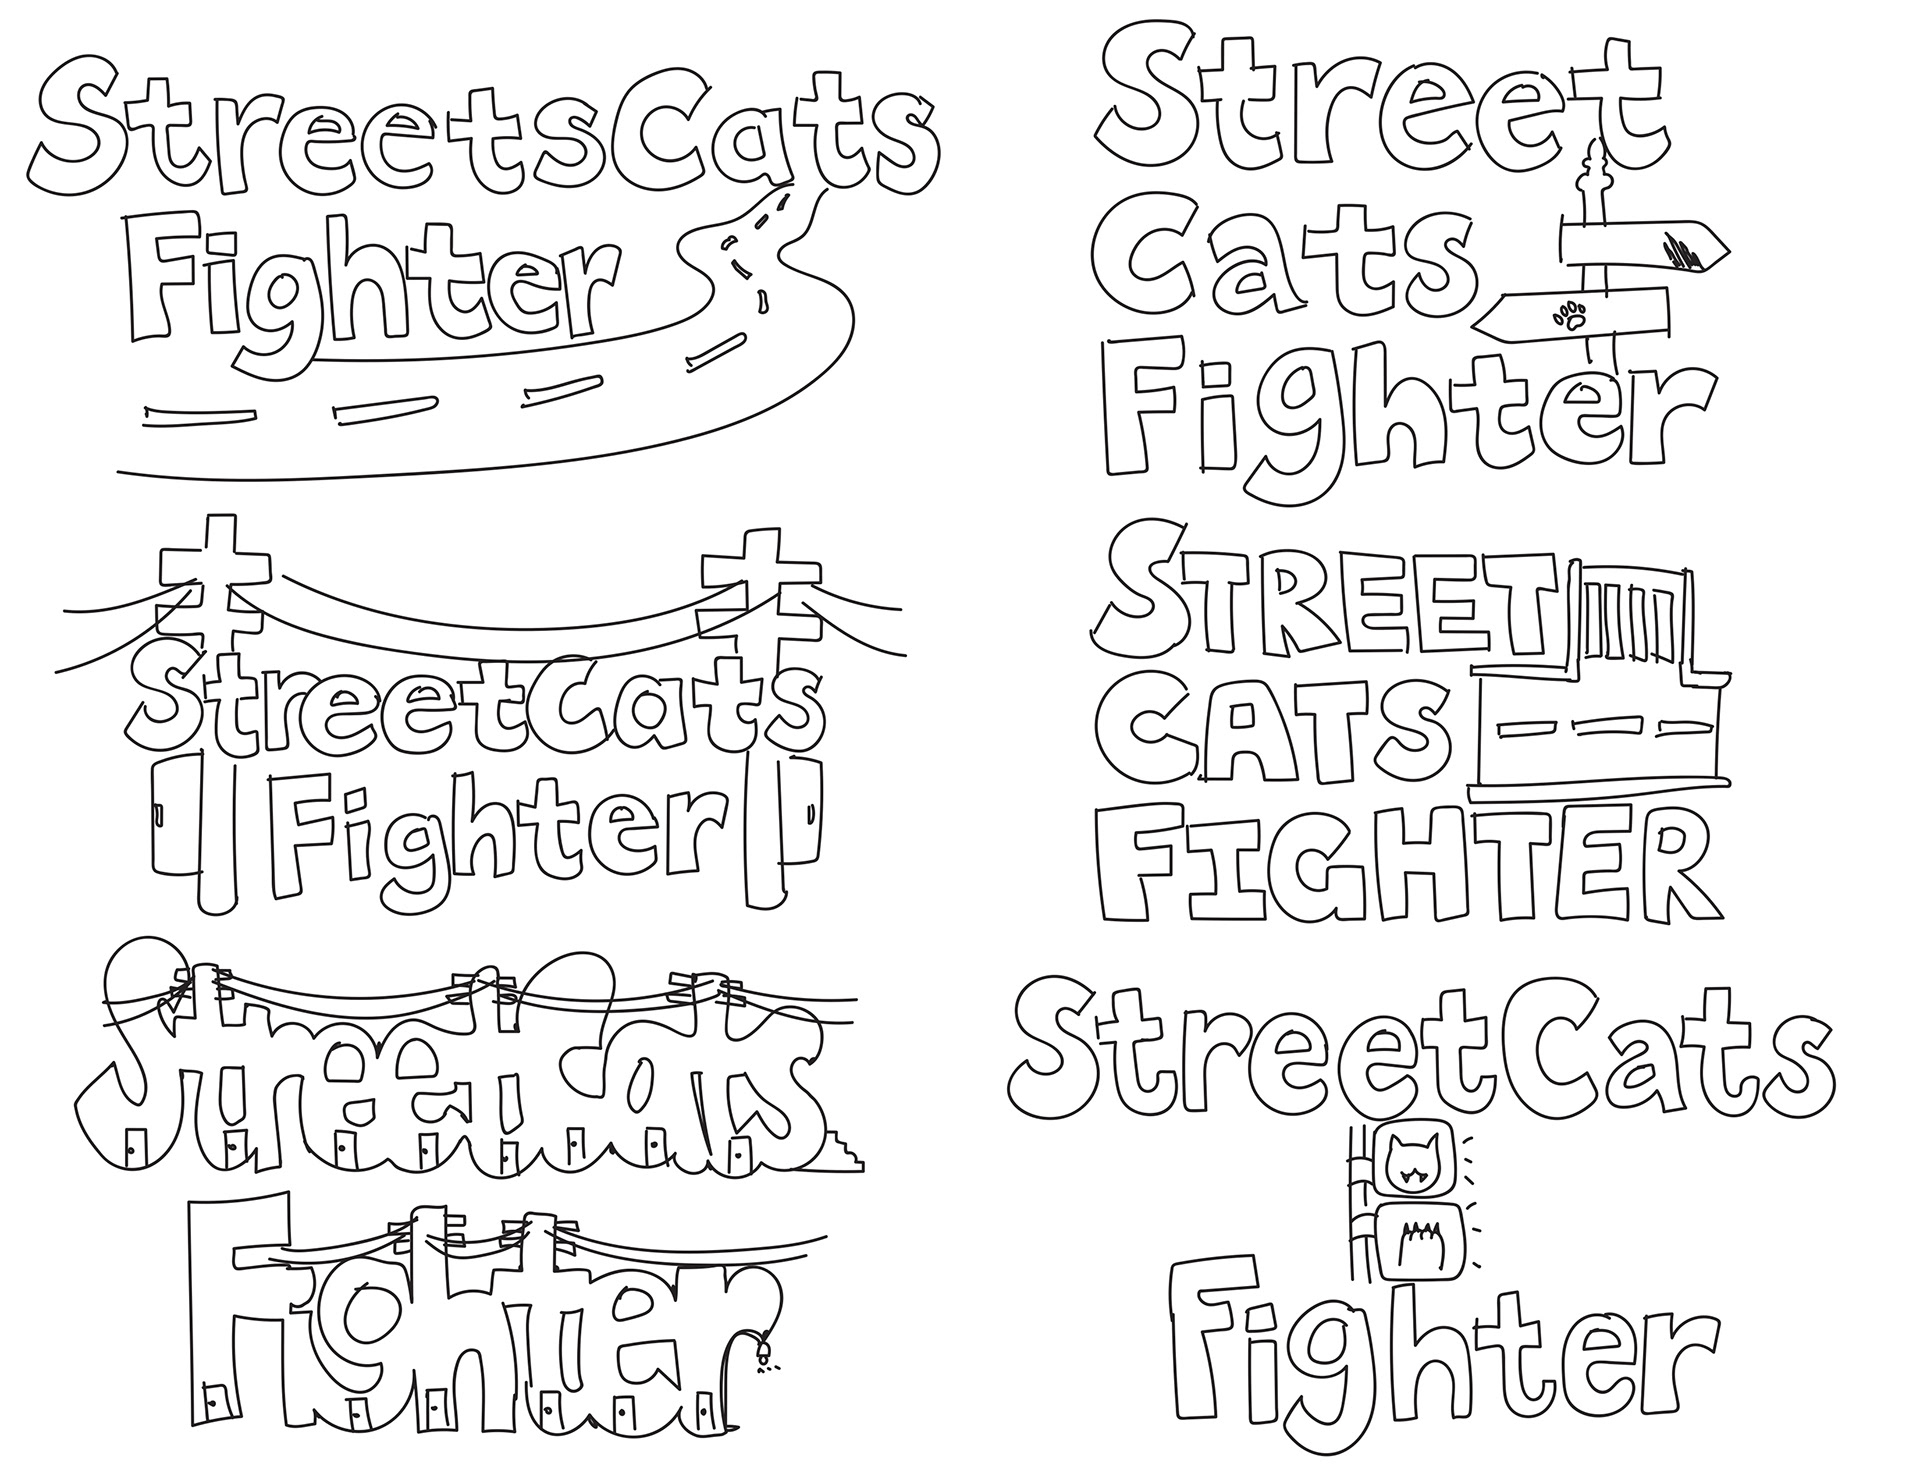 StreetsCats
Fighter
StreetCats
Fighter
StreetCats
Fighter
Street
Cats
Fighter
STREET
CATS
FIGHTER
StreetCats
Fighter